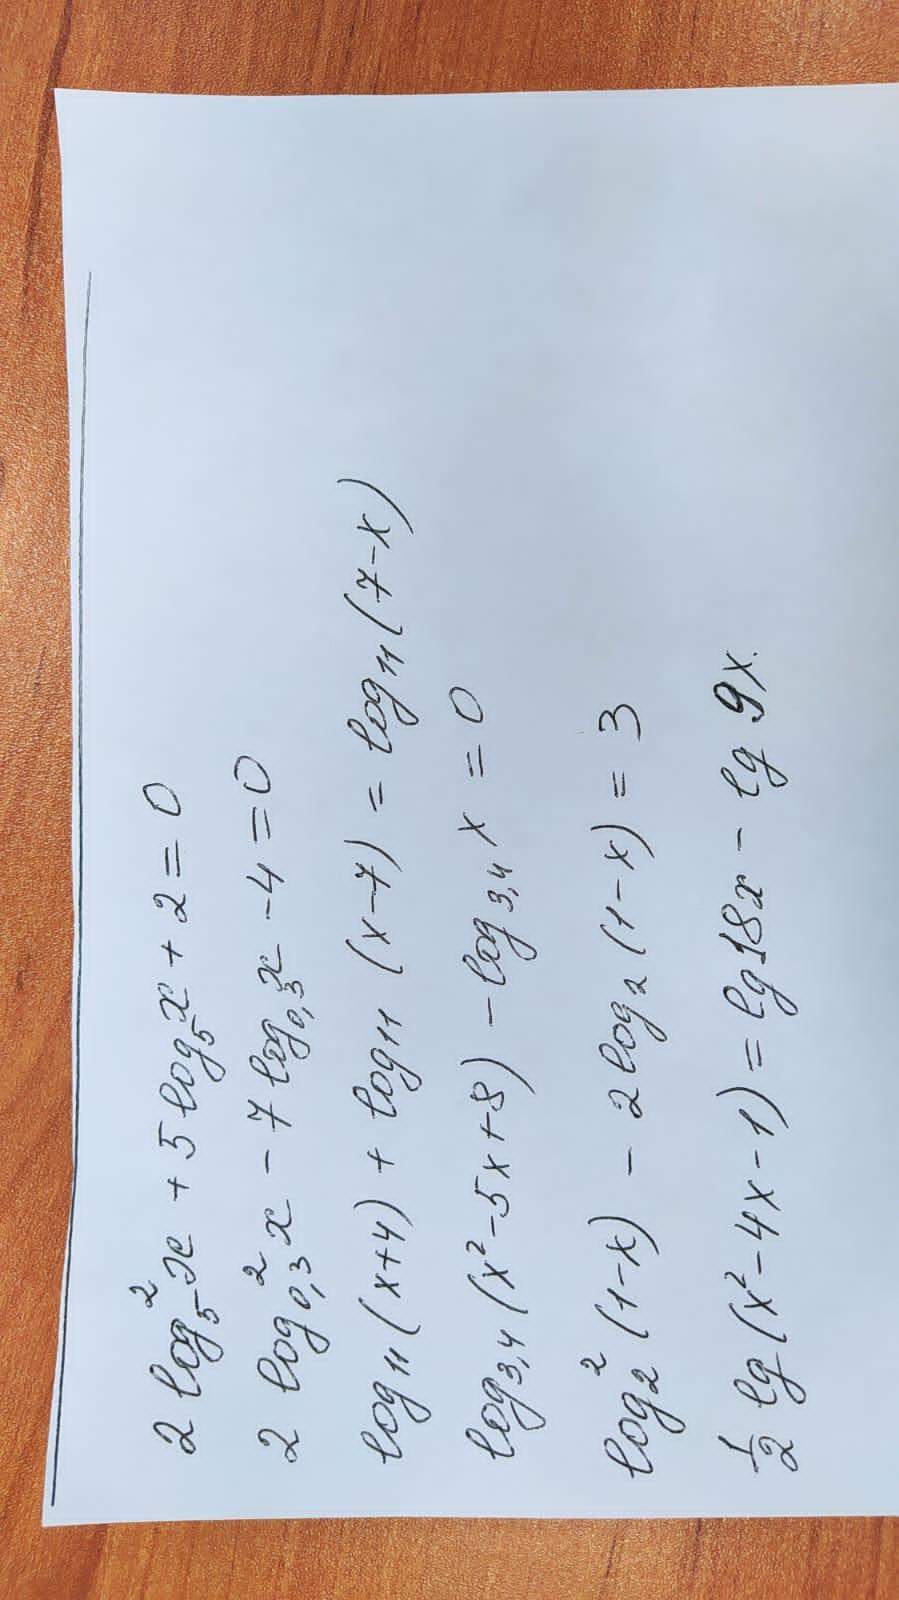 2 log₅² x + 5 log₅ x + 2 = 0
2 log₀,₃² x - 7 log₀,₃ x - 4 = 0
log₁₁ (x+4) + log₁₁ (x-7) = log₁₁ (7-x)
log₃,₄ (x²-5x+8) - log₃,₄ x = 0
log₂² (1-x) - 2 log₂ (1-x) = 3
1/2 lg (x²-4x-1) = lg 18x - lg 9x.